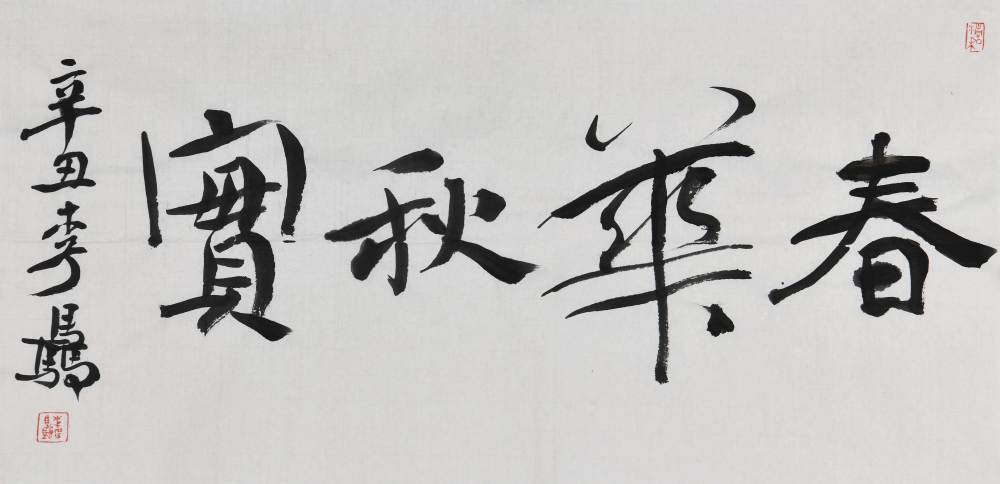 春華秋實
辛丑李